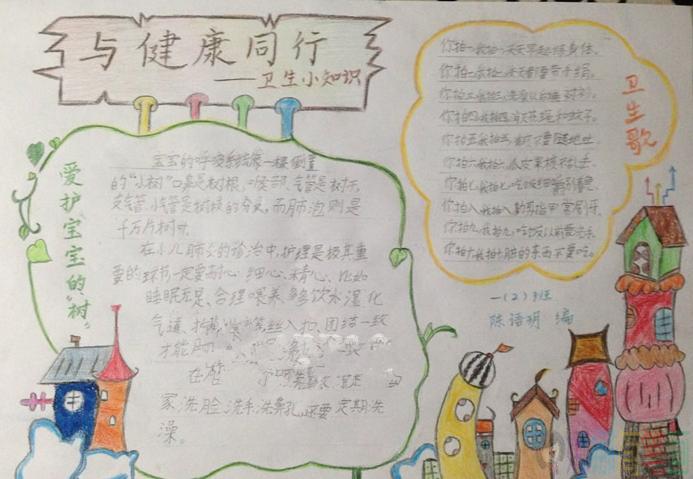 与健康同行
——卫生小知识
爱护宝宝的"树"
宝宝的呼吸系统像一棵倒置
的"小树"口鼻是树根,喉部、气管是树干,
支气管、小气管是树枝的分叉,而肺泡则是
千万片树叶。
在小儿肺炎的诊治中,护理是极其重
要的环节一定要耐心、细心、精心、比如
睡眠充足、合理喂养、多饮水、湿化
气道、丝丝入扣、团结一致
才能
家洗脸、洗手、洗鼻孔,还要定期洗
澡。
卫生歌
你拍一我拍一天天早起练身体。
你拍二我拍二天天要带手绢。
你拍三我拍三洗澡以后
你拍四我拍四消灭苍蝇和蚊子。
你拍五我拍五有痰不要随地吐。
你拍六我拍六瓜皮果核不乱丢。
你拍七我拍七吃饭细嚼别着急。
你拍八我拍八勤剪指甲常刷牙。
你拍九我拍九吃饭以前要洗手。
你拍十我拍十脏的东西不要吃。
一(2)班
陈语玥 编